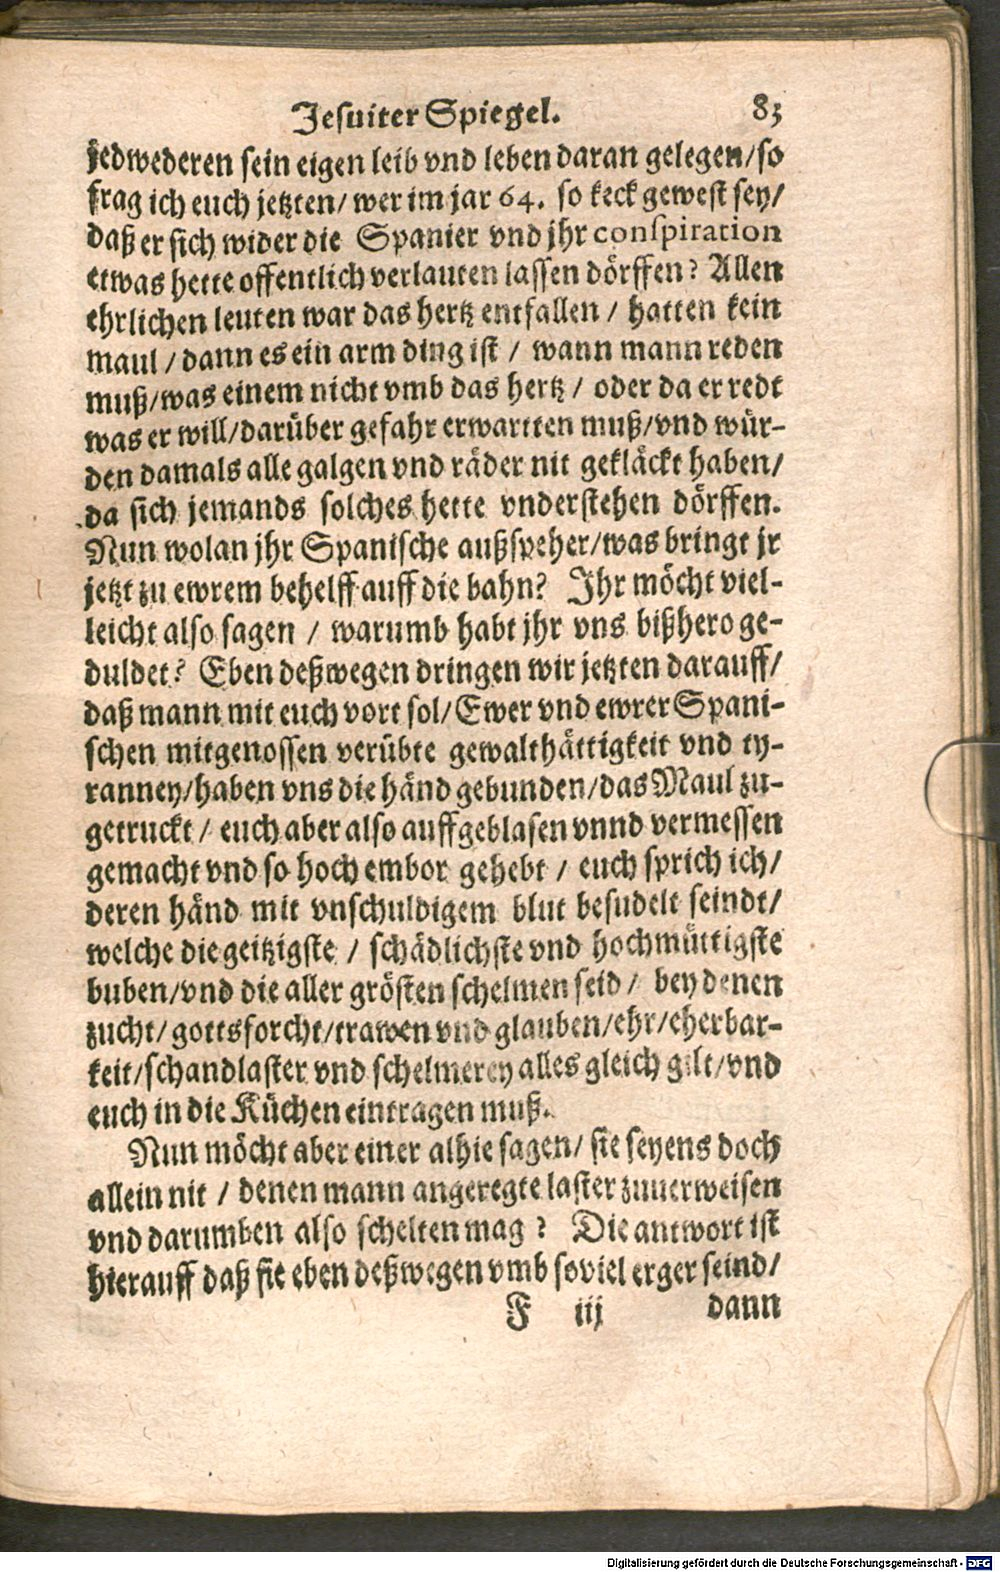 Jesuiter Spiegel. 83
jedwederen sein eigen leib vnd leben daran gelegen/so
frag ich euch jetzten/ wer im jar 64. so keck gewest sey/
daß er sich wider die Spanier vnd jhr conspiration
etwas hette offentlich verlauten lassen dörffen? Allen
ehrlichen leuten war das hertz entfallen / hatten kein
maul / dann es ein arm ding ist / wann mann reden
muß/was einem nicht vmb das hertz / oder da er redt
was er will/darüber gefahr erwartten muß/vnd wür-
den damals alle galgen vnd räder nit gekläckt haben/
da sich jemands solches hette vnderstehen dörffen.
Nun wolan jhr Spanische außspeher/was bringt jr
jetzt zu ewrem behelff auff die bahn? Ihr möcht viel-
leicht also sagen / warumb habt jhr vns bißhero ge-
duldet? Eben deßwegen dringen wir jetzten darauff/
daß mann mit euch vort sol/Ewer vnd ewrer Spani-
schen mitgenossen verübte gewalthättigkeit vnd ty-
ranney/haben vns die händ gebunden/das Maul zu-
getruckt / euch aber also auffgeblasen vnnd vermessen
gemacht vnd so hoch embor gehebt / euch sprich ich/
deren händ mit vnschuldigem blut besudelt seindt/
welche die geitzigste / schädlichste vnd hochmüttigste
buben/vnd die aller grösten schelmen seid / bey denen
zucht/gottsforcht/trawen vnd glauben/ehr/eherbar-
keit/schandlaster vnd schelmerey alles gleich gilt/vnd
euch in die Küchen eintragen muß.
Nun möcht aber einer alhie sagen/ sie seyens doch
allein nit / denen mann angeregte laster zuuerweisen
vnd darumben also schelten mag ? Die antwort ist
hierauff daß sie eben deßwegen vmb soviel erger seind/
F iij dann
Digitalisierung gefördert durch die Deutsche Forschungsgemeinschaft - DFG